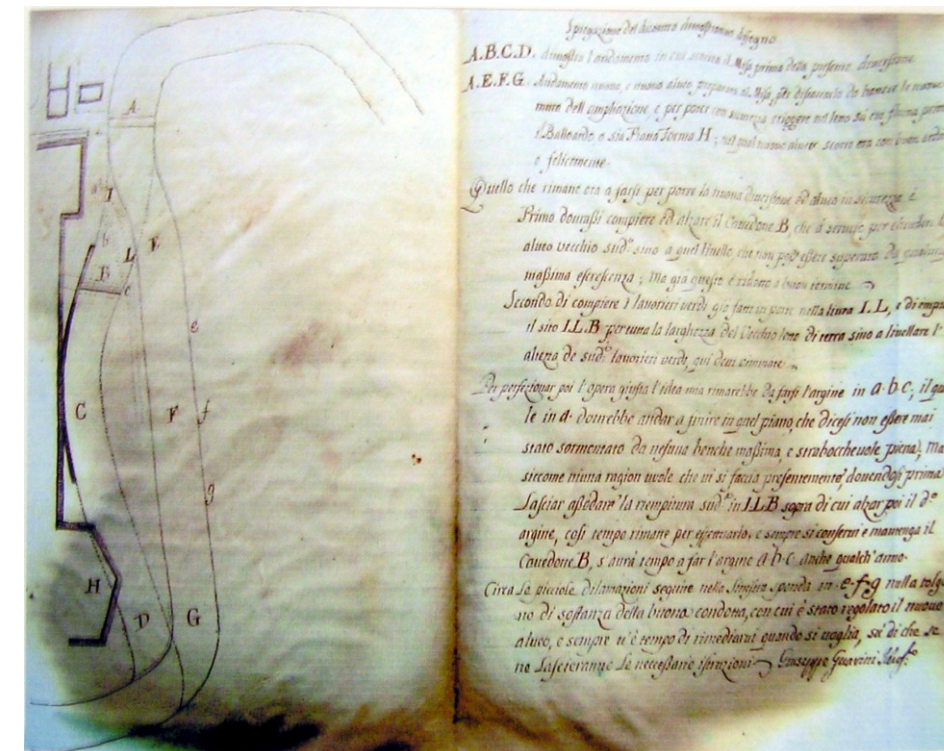 A
a
b
I
L
E
B
c
e
C
F
f
g
H
D
G
Spiegazione del discontro disegno
A.B.C.D. dimostra l'andamento in cui scorreva il Misa prima della presente diversione
A.E.F.G. Andamento nuovo, e nuovo alveo preparato al Misa, per
muro dell'ampliazione, e per poter con sicurezza erigere nel letto
il Balloardo o sia Piana forma H; nel qual nuovo alveo scorre ora con buon
e felicemente.
Quello che rimane ora a farsi per porre la nuova diversione ed alveo in sicurezza è
Primo dovrassi compiere ed alzare il Cavedone B, che à servito per
alveo vecchio sud.º sino a quel livello che non può essere superato da qualunque
massima escrescenza; ma già questo è ridotto a buon termine
Secondo di compiere i lavorieri verdi già fatti in parte nella linea I.L, e di empire
il sito I.L.B per tutta la larghezza del Vecchio letto di terra sino a livellare l'
altezza de sud.i lavorieri verdi, qui deve
Per perfezionar poi l'opera giusta l'idea mia rimarrebbe da farsi l'argine in a·b·c, il qua
le in a· dovrebbe andar a finire in quel piano, che dicesi non essere mai
stato sormontato da nessuna benche massima, e straboccchevole piena; Ma
siccome niuna ragion vuole che vi si faccia presentemente, dovendosi prima
lasciar assodare la riempitura sud.ª in I.L.B sopra di cui alzar poi il d.º
argine, così tempo rimane per eseguirlo, e sempre si conservi e mantenga il
Cavedone B, s'avrà tempo a far l'argine a·b·c anche qualch'anno
Circa le picciole dilamazioni seguite nella sinistra sponda in e·f·g nulla tolgo
no di sostanza della buona condotta, con cui è stato regolato il nuovo
alveo, e sempre v'è tempo di rimediarvi quando si voglia, su di che se
ne lascieranno le necessarie istruzioni Giuseppe